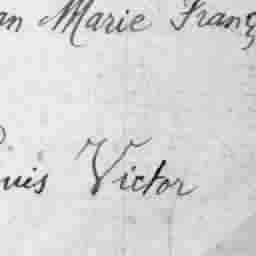 an Marie Franç
uis Victor